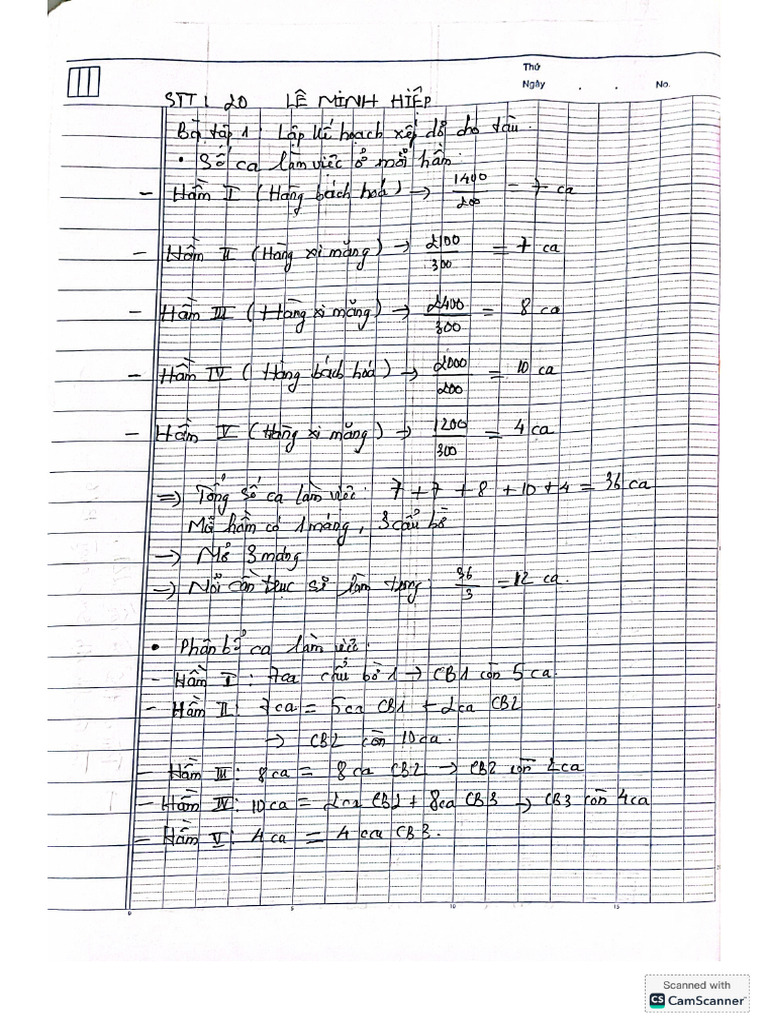 Thứ
Ngày . . No.
STT : 20 LÊ MINH HIỆP
Bà tập 1 : Lập kế hoạch xếp dỡ cho tàu.
• Số ca làm việc ở mỗi hầm:
- Hầm I (Hàng bách hoá) → 1400/200 = 7 ca
- Hầm II (Hàng xi măng) → 2100/300 = 7 ca
- Hầm III (Hàng xi măng) → 2400/300 = 8 ca
- Hầm IV (Hàng bách hoá) → 2000/200 = 10 ca
- Hầm V (Hàng xi măng) → 1200/300 = 4 ca
=> Tổng số ca làm việc: 7 + 7 + 8 + 10 + 4 = 36 ca
Mỗi hầm có 1 máng, 3 cẩu bờ
→ Mở 3 máng
→ Mỗi cần trục sẽ làm trong 36/3 = 12 ca.
• Phân bổ ca làm việc:
- Hầm I : 7 ca cẩu bờ 1 → CB1 còn 5 ca.
- Hầm II: 7 ca = 5 ca CB1 + 2 ca CB2
→ CB2 còn 10 ca.
- Hầm III: 8 ca = 8 ca CB2 → CB2 còn 2 ca
- Hầm IV: 10 ca = 2 ca CB2 + 8 ca CB3 → CB3 còn 4 ca
- Hầm V: 4 ca = 4 ca CB3.
0 5 10 15
Scanned with
CS CamScanner